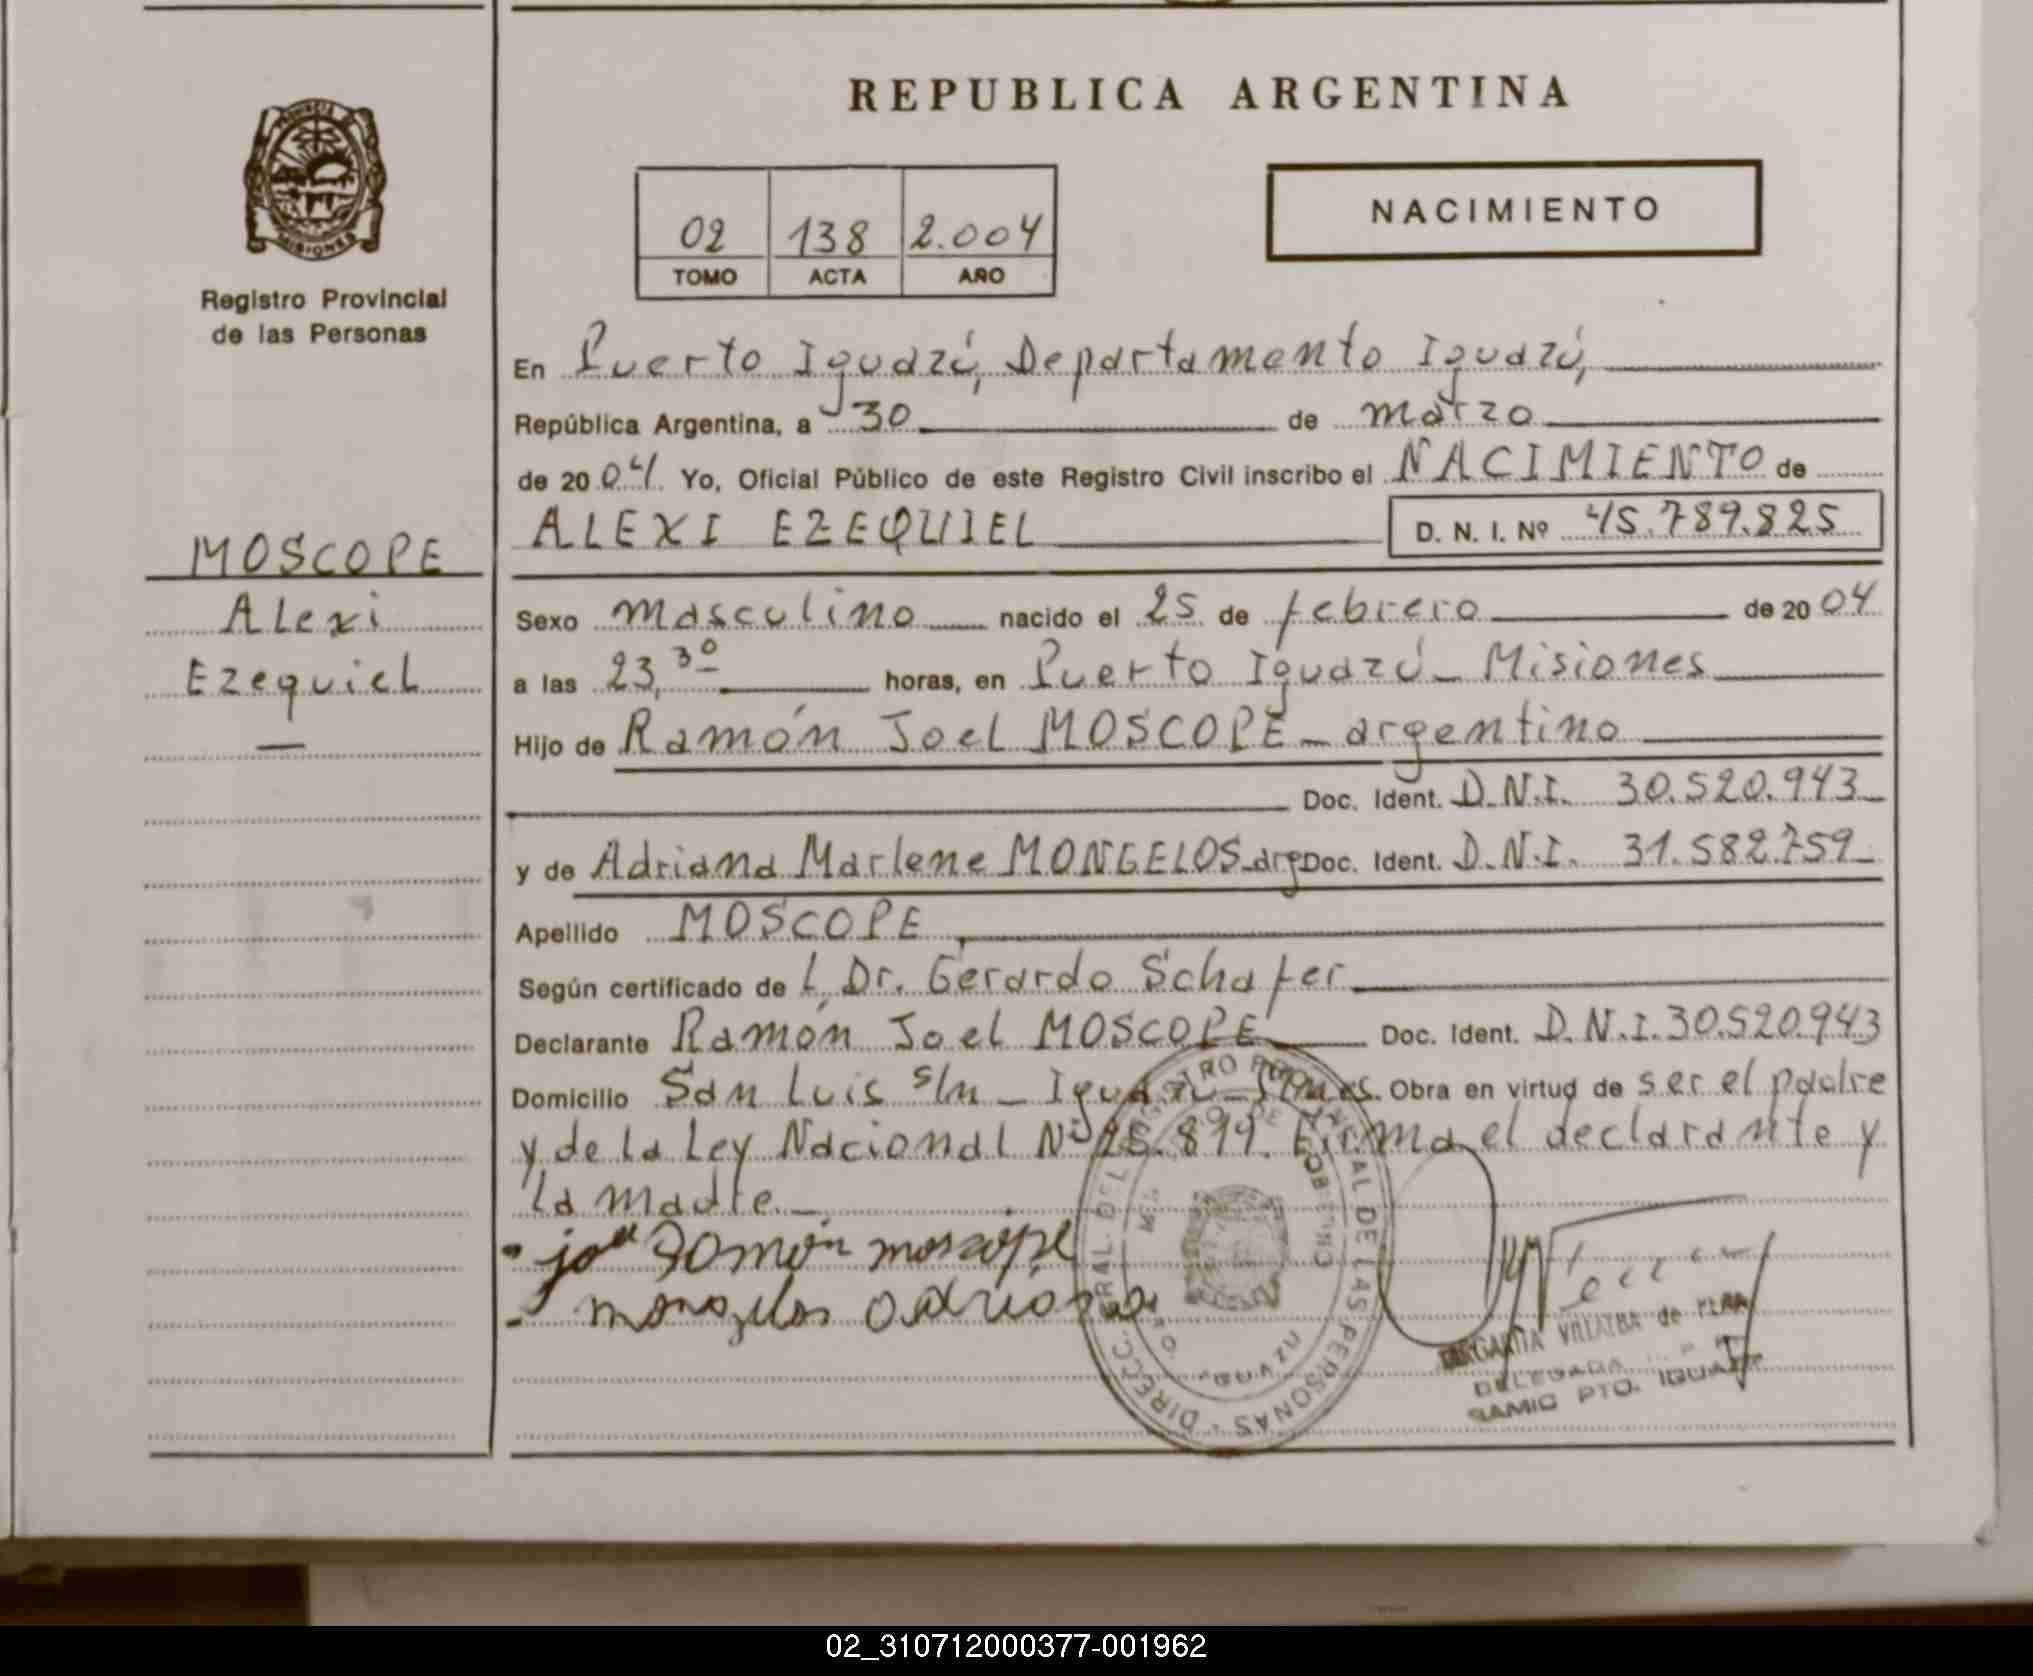 REPUBLICA ARGENTINA
MISIONES
Registro Provincial
de las Personas
02 138 2.004
TOMO ACTA AÑO
NACIMIENTO
En Puerto Iguazú, Departamento Iguazú,
República Argentina, a 30 de marzo
de 2004 Yo, Oficial Público de este Registro Civil inscribo el NACIMIENTO de
ALEXI EZEQUIEL D. N. I. Nº 45.789.825
MOSCOPE
Alexi
Ezequiel
Sexo masculino nacido el 25 de febrero de 2004
a las 23,30 horas, en Puerto Iguazú - Misiones
Hijo de Ramón Joel MOSCOPE - argentino
Doc. Ident. D.N.I. 30.520.943
y de Adriana Marlene MONGELOS - arg Doc. Ident. D.N.I. 31.582.759
Apellido MOSCOPE
Según certificado de L, Dr. Gerardo Schafer
Declarante Ramón Joel MOSCOPE Doc. Ident. D.N.I. 30.520.943
Domicilio San Luis s/n - Iguazú - Obra en virtud de ser el padre
y de la Ley Nacional Nº 25.899. Firma el declarante y
la madre. -
Ramón moscope
mongelos adriana
DIRECC. GRAL. DEL REGISTRO PROVINCIAL DE LAS PERSONAS
IGUAZU
VILLALBA de
DELEGADA
SAMIC PTO. IGUAZU
02_310712000377-001962